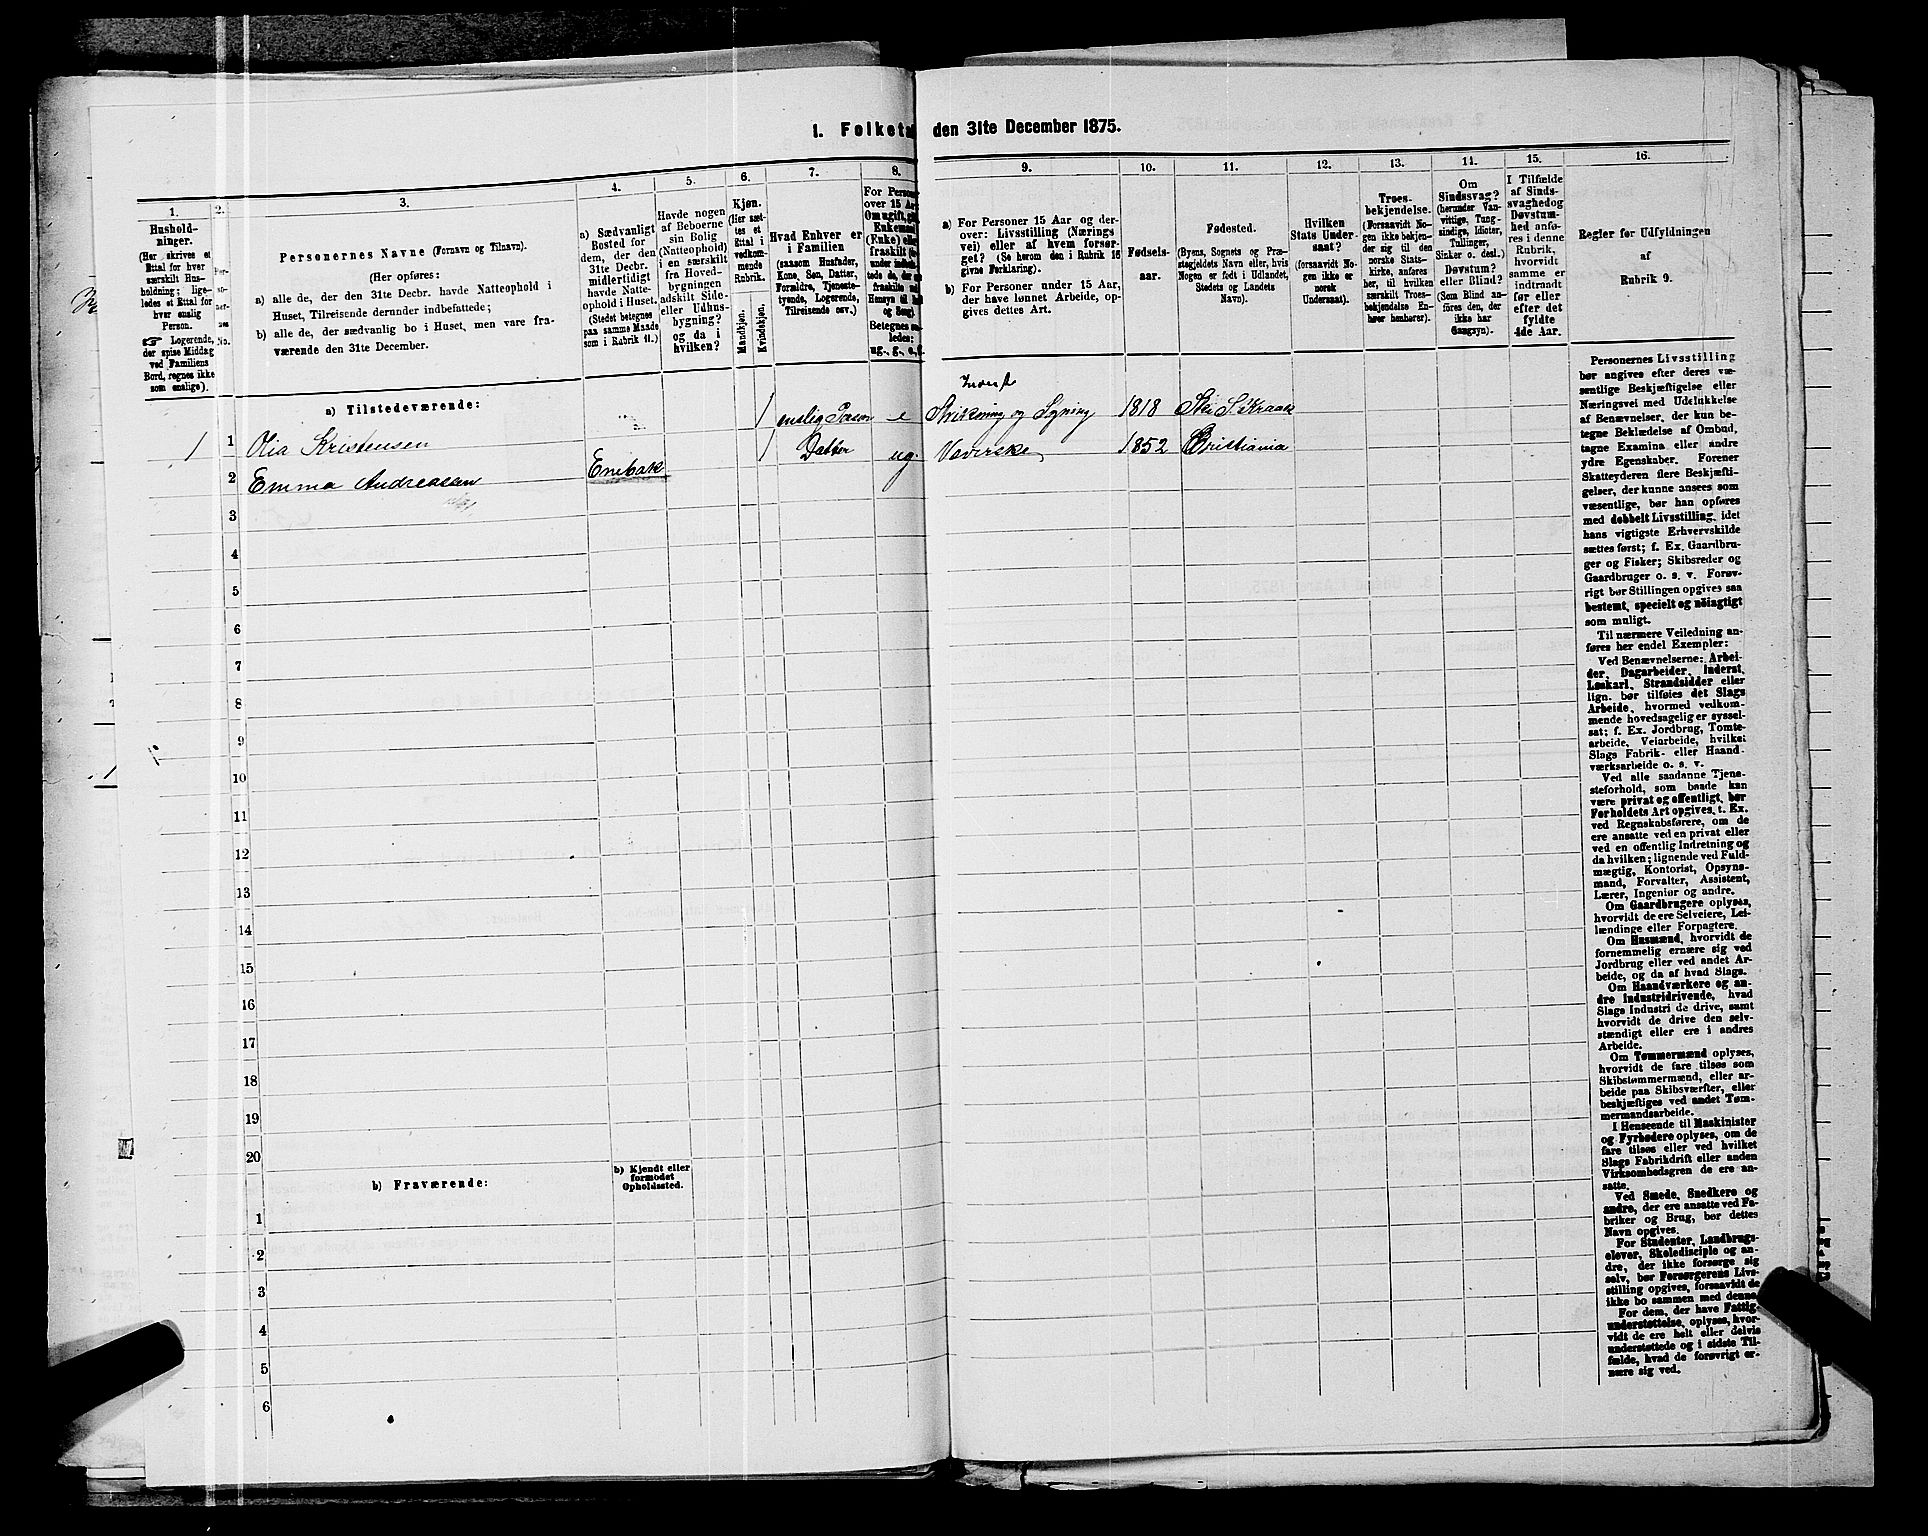 1. Folketal den 31te December 1875.
1.
2.
3.
4.
5.
6.
7.
8.
9.
10.
11.
12.
13.
14.
15.
16.
Hushold-
ninger.
(Her skrives et
Ettal for hver
særskilt Hus-
holdning; lige-
ledes et Ettal for
hver enslig
Person.
☞ Logerende,
der spise Middag
ved Familiens
Bord, regnes ikke
som enslige).
Personernes Navne (Fornavn og Tilnavn).
(Her opføres:
a) alle de, der den 31te Decbr. havde Natteophold i
Huset, Tilreisende derunder indbefattede;
b) alle de, der sædvanlig bo i Huset, men vare fra-
værende den 31te December.
a) Sædvanligt
Bosted for
dem, der den
31te Decbr.
midlertidigt
havde Natte-
ophold i Huset.
(Stedet betegnes
paa samme Maade
som i Rubrik 11.)
Havde nogen
af Beboerne
sin Bolig
(Natteophold)
i en særskilt
fra Hoved-
bygningen
adskilt Side-
eller Udhus-
bygning?
og da i
hvilken?
Kjøn.
(Her sæt-
tes et
Ettal i
vedkom-
mende
Rubrik.
Mandkjøn.
Kvindekjøn.
Hvad Enhver er
i Familien
(saasom Husfader,
Kone, Søn, Datter,
Forældre, Tjeneste-
tyende, Logerende,
Tilreisende osv.)
a) For Personer 15 Aar og der-
over: Livsstilling (Nærings
vei) eller af hvem forsør-
get? (Se herom den i Rubrik 16
givne Forklaring).
b) For Personer under 15 Aar,
der have lønnet Arbeide, op-
gives dettes Art.
Fødsels-
aar.
Fødested.
(Byens, Sognets og Præ-
stegjeldets Navn eller, hvis
Nogen er født i Udlandet,
Stedets og Landets
Navn).
Hvilken
Stats Under-
saat?
(forsaavidt No-
gen ikke er
norsk
Undersaat).
Troes-
bekjendelse.
(Forsaavidt No-
gen ikke bekjen-
der sig til den
norske Stats-
kirke, anføres
her, til hvilken
særskilt Troes-
bekjendelse En-
hver henhører).
Om
Sindssvag?
(herunder Van-
vittige, Tung-
sindige, Idioter,
Tullinger,
Sinker o. desl.)
Døvstum?
eller Blind?
(Som Blind an-
føres den, der
ikke har
Gangsyn).
I Tilfælde
af Sinds-
svaghed og
Døvstum-
hed anfø-
res i denne
Rubrik,
hvorvidt
samme er
indtraadt
før eller
efter det
fyldte
4de Aar.
Regler for Udfyldningen
af
Rubrik 9.
a) Tilstedeværende:
1 1 Olia Kristensen 1 enslig Person e Strikning og Syning 1818 Ski S. Kraak
2 Emma Andreassen Enebak 1 Datter ug. Væverske 1852 Cristiania
3
4
5
6
7
8
9
10
11
12
13
14
15
16
17
18
19
20
b) Fraværende:
b) Kjendt eller
formodet
Opholdssted.
1
2
3
4
5
6
Personernes Livsstilling
bør angives efter deres væ-
sentlige Beskjæftigelse eller
Næringsvei med Udelukkelse
af Benævnelser, der kun be-
tegne Beklædelse af Ombud,
tagne Examina eller andre
ydre Egenskaber. Forener
Skatteyderen flere Beskjæfti-
gelser, der kunne ansees som
væsentlige, bør han opføres
med dobbelt Livsstilling, idet
hans vigtigste Erhvervskilde
sættes først; f. Ex. Gaardbru-
ger og Fisker; Skibsreder og
Gaardbruger o. s. v. Forøv-
rigt bør Stillingen opgives saa
bestemt, specielt og nøiagtigt
som muligt.
Til nærmere Veiledning an-
føres her endel Exempler:
Ved Benævnelserne: Arbei-
der, Dagarbeider, Inderst,
Løskarl, Strandsidder eller
lign. bør tilføies det Slags
Arbeide, hvormed vedkom-
mende hovedsagelig er syssel-
sat; f. Ex. Jordbrug, Tomte-
arbeide, Veiarbeide, hvilket
Slags Fabrik- eller Haand-
værksarbeide o. s. v.
Ved alle saadanne Tjene-
steforhold, som baade kan
være privat og offentligt, bør
Forholdets Art opgives, t. Ex.
ved Regnskabsførere, om de
ere ansatte ved en privat eller
ved en offentlig Indretning og
da hvilken; lignende ved Fuld-
mægtig, Kontorist, Opsyns-
mand, Forvalter, Assistent,
Lærer, Ingeniør og andre.
Om Gaardbrugere oplyses,
hvorvidt de ere Selveiere, Lei-
lændinge eller Forpagtere.
Om Husmænd, hvorvidt de
fornemmelig ernære sig ved
Jordbrug eller ved andet Ar-
beide, og da af hvad Slags.
Om Haandværkere og an-
dre Industridrivende, hvad
Slags Industri de drive, samt
hvorvidt de drive den selv-
stændigt eller ere i andres
Arbeide.
Om Tømmermænd oplyses,
hvorvidt de fare tilsøs som
Skibstømmermænd, eller ar-
beide paa Skibsværfter, eller
beskjæftiges ved andet Tøm-
mermandsarbeide.
I Henseende til Maskinister
og Fyrbødere oplyses, om de
fare tilsøs eller ved hvilket
Slags Fabrikdrift eller anden
Virksomhedsgren de ere an-
satte.
Ved Smede, Snedkere og
andre, der ere ansatte ved Fa-
briker og Brug, bør dettes
Navn opgives.
For Studenter, Landbrugs-
elever, Skoledisciple og an-
dre, der ikke forsørge sig
selv, bør Forsørgerens Livs-
stilling opgives, forsaavidt de
ikke bo sammen med denne.
For dem, der have Fattig-
understøttelse, oplyses, hvor-
vidt de ere helt eller delvis
understøttede og i sidste Til-
fælde, hvad de forøvrigt er-
nære sig ved.